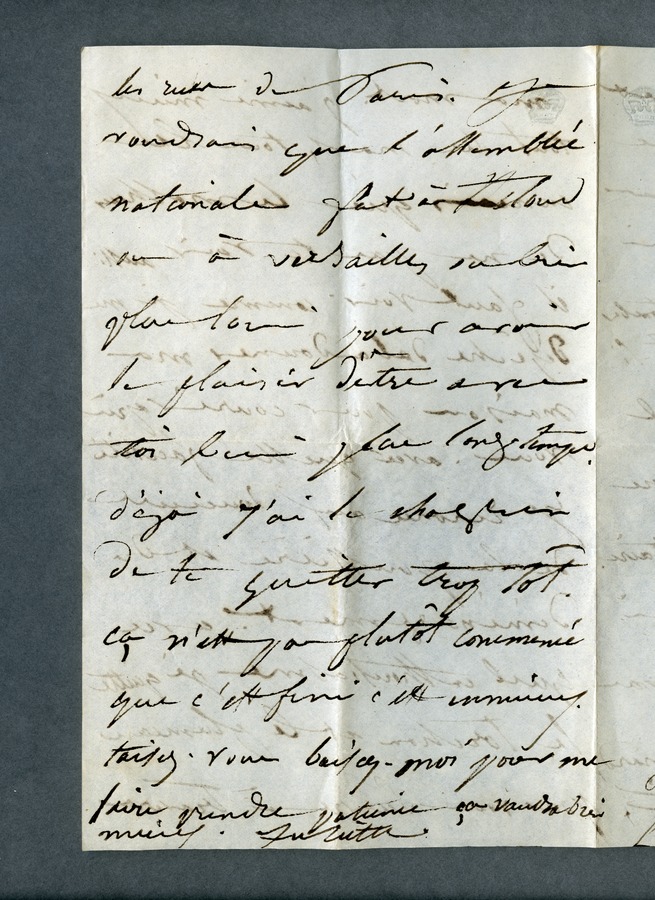 les rues de Paris. Je
voudrais que l'assemblée
nationale fut à St Cloud
ou à versailles ou bien
plus loin pour avoir
le plaisir d'être avec
toi bien plus longtemps.
déjà j'ai le chagrin
de te quitter trop tôt.
ça n'est pas plutôt commencé
que c'est fini c'est ennuieux.
taisez-vous baisez-moi pour me
faire prendre patience ça vaudra bien
mieux. Juliette.